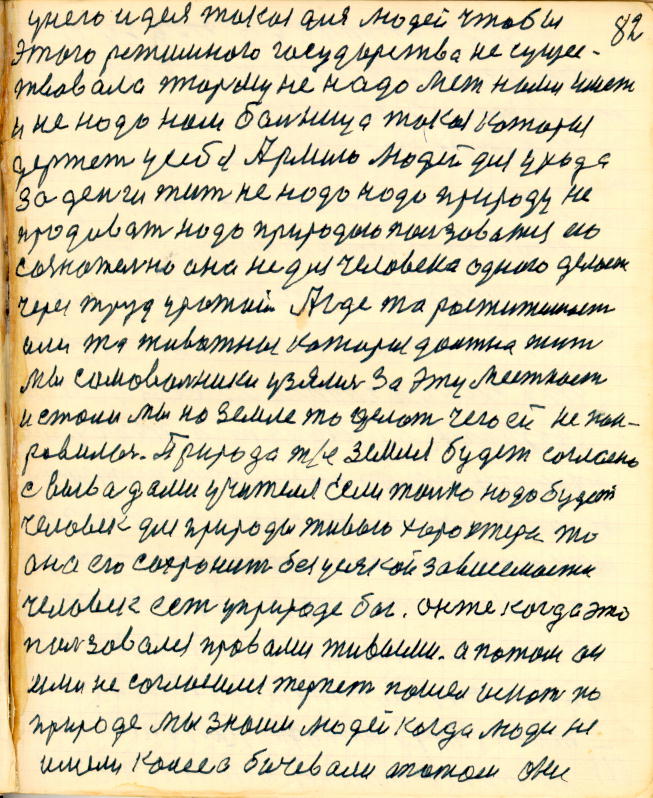 82
унего идея такая для людей чтобы
этого режимного государства не суще-
твовала тюрму не надо мет нами имет
и не надо нам балница такая которая
держет усебя Армию людей для ухода
За денги жит не надо надо природу не
продоват надо природою ползоватя ею
сознателно она не для человека одного делает
через труд урожай А где та растителност
али та животная которая должна жит
мы самоволники узялис За эту местност
и стали мы на земле то делат чего ей не пон-
равилос. Природа т/е земля будет согласно
с вывадами учителя Если толко надо будет
человек для природы живого характера то
она его сохронит без усякой зависемости
человек ест уприроде бог. он же когда это
ползовался правами живыми. а потом он
ими не согласился терпет пошел искат по
природе мы знаем людей когда люди не
имели колеса бичевали потом они